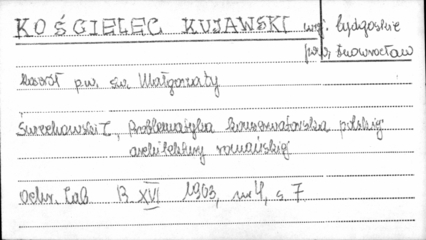 KOŚCIELEC KUJAWSKI woj. bydgoskie
pow. Inowrocław
Kościół pw. św. Małgorzaty
Świechowski Z., Problematyka konserwatorska polskiej
architektury romańskiej
Ochr. Zab R. XVI 1963, nr 4, s. 7